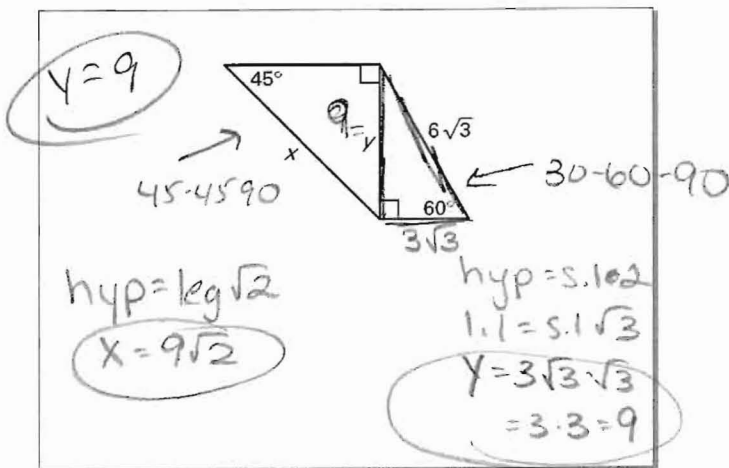 y = 9
45°
9 = y
6√3
x
45-45 90
30-60-90
60°
3√3
hyp = leg √2
x = 9√2
hyp = s.l•2
l.l = s.l √3
y = 3√3·√3
= 3·3 = 9